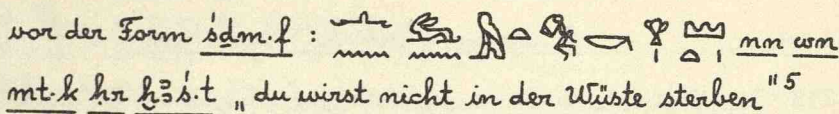 vor der Form śḏm·f : 𓂜𓈖 𓃹𓈖 𓅓𓏏𓀐𓎡 𓁷𓏤 𓈉𓏏𓏤 nn wn
mt·k ḥr ḫꜣś·t „du wirst nicht in der Wüste sterben" 5